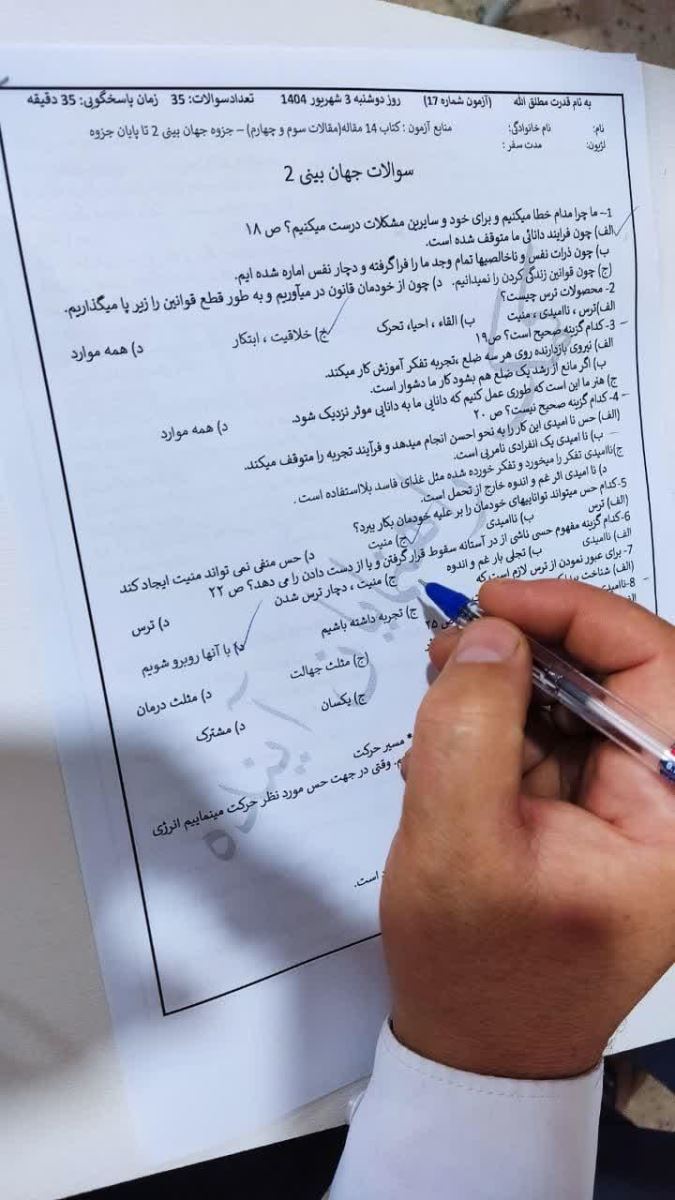 به نام قدرت مطلق الله (آزمون شماره 17) روز دوشنبه 3 شهریور 1404 تعدادسوالات: 35 زمان پاسخگویی: 35 دقیقه
نام: نام خانوادگی: منابع آزمون : کتاب 14 مقاله(مقالات سوم و چهارم) – جزوه جهان بینی 2 تا پایان جزوه
لژیون: مدت سفر :
سوالات جهان بینی 2
1- ما چرا مدام خطا میکنیم و برای خود و سایرین مشکلات درست میکنیم؟ ص ۱۸
الف) چون فرایند دانائی ما متوقف شده است.
ب) چون ذرات نفس و ناخالصیها تمام وجد ما را فراگرفته و دچار نفس اماره شده ایم.
(ج) چون قوانین زندگی کردن را نمیدانیم. د) چون از خودمان قانون در میآوریم و به طور قطع قوانین را زیر پا میگذاریم.
2- محصولات ترس چیست؟
الف)ترس ، ناامیدی ، منیت ب) القاء ، احیاء، تحرک ج) خلاقیت ، ابتکار د) همه موارد
3- کدام گزینه صحیح است؟ ص۱۹
الف) نیروی بازدارنده روی هر سه ضلع ،تجربه تفکر آموزش کار میکند.
ب) اگر مانع از رشد یک ضلع هم بشود کار ما دشوار است.
ج) هنر ما این است که طوری عمل کنیم که دانایی ما به دانایی موثر نزدیک شود. د) همه موارد
4- کدام گزینه صحیح نیست؟ ص ۲۰
(الف) حس نا امیدی این کار را به نحو احسن انجام میدهد و فرآیند تجربه را متوقف میکند.
ب) نا امیدی یک انفرادی نامریی است.
ج)ناامیدی تفکر را میخورد و تفکر خورده شده مثل غذای فاسد بلااستفاده است .
د) نا امیدی اثر غم و اندوه خارج از تحمل است.
5-کدام حس میتواند تواناییهای خودمان را بر علیه خودمان بکار ببرد؟
(الف) ترس ب) ناامیدی ج) منیت د) حس منفی نمی تواند منیت ایجاد کند
6-کدام گزینه مفهوم حسی ناشی از در آستانه سقوط قرار گرفتن و یا از دست دادن را می دهد؟ ص ۲۲
الف) ناامیدی ب) تجلی بار غم و اندوه ج) منیت ، دچار ترس شدن د) ترس
7- برای عبور نمودن از ترس لازم است که
(الف) شناخت ج) تجربه داشته باشیم د) با آنها روبرو شویم
8-ناامیدی ص ۲۵
(ج) مثلث جهالت د) مثلث درمان
ج) یکسان د) مشترک
* مسیر حرکت
وقتی در جهت حس مورد نظر حرکت مینماییم انرژی
است.
راهنمایان آینده